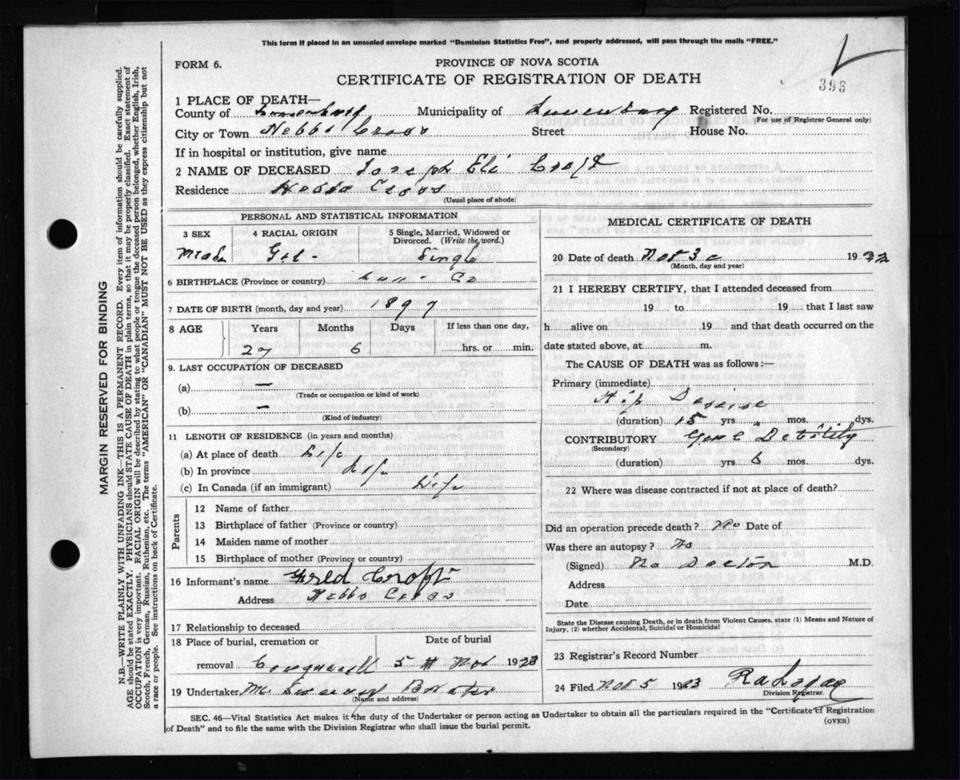 This form if placed in an unsealed envelope marked "Dominion Statistics Free", and properly addressed, will pass through the mails "FREE."
FORM 6.
PROVINCE OF NOVA SCOTIA
CERTIFICATE OF REGISTRATION OF DEATH
398
1 PLACE OF DEATH—
County of Lunenburg Municipality of Lunenburg Registered No.
(For use of Registrar General only)
City or Town Hebbs Cross Street House No.
If in hospital or institution, give name
2 NAME OF DECEASED Joseph Eli Croft
Residence Hebbs Cross
(Usual place of abode)
PERSONAL AND STATISTICAL INFORMATION
3 SEX 4 RACIAL ORIGIN 5 Single, Married, Widowed or Divorced. (Write the word.)
Ger- Single
6 BIRTHPLACE (Province or country) Lun- Co
7 DATE OF BIRTH (month, day and year) 1897
8 AGE Years Months Days If less than one day,
27 6 hrs. or min.
9. LAST OCCUPATION OF DECEASED
(a) —
(Trade or occupation or kind of work)
(b) —
(Kind of industry)
11 LENGTH OF RESIDENCE (in years and months)
(a) At place of death Life
(b) In province Life
(c) In Canada (if an immigrant) Life
Parents
12 Name of father
13 Birthplace of father (Province or country)
14 Maiden name of mother
15 Birthplace of mother (Province or country)
16 Informant's name Fred Croft
Address Hebbs Cross
17 Relationship to deceased
18 Place of burial, cremation or removal Date of burial
Conquerall 5th Nov 1923
19 Undertaker
(Name and address)
MEDICAL CERTIFICATE OF DEATH
20 Date of death Nov 3 19 23
(Month, day and year)
21 I HEREBY CERTIFY, that I attended deceased from
19 to 19 that I last saw
h alive on 19 and that death occurred on the
date stated above, at m.
The CAUSE OF DEATH was as follows:—
Primary (immediate)
Hip Desease
(duration) 15 yrs. " mos. dys.
CONTRIBUTORY Genl Debility
(Secondary)
(duration) yrs 6 mos. dys.
22 Where was disease contracted if not at place of death?
Did an operation precede death? No Date of
Was there an autopsy? No
(Signed) No Doctor M.D.
Address
Date
State the Disease causing Death, or in death from Violent Causes, state (1) Means and Nature of Injury, (2) whether Accidental, Suicidal or Homicidal
23 Registrar's Record Number
24 Filed Nov 5 1923
Division Registrar.
SEC. 46—Vital Statistics Act makes it the duty of the Undertaker or person acting as Undertaker to obtain all the particulars required in the "Certificate of Registration
of Death" and to file the same with the Division Registrar who shall issue the burial permit.
(OVER)
MARGIN RESERVED FOR BINDING
N.B.—WRITE PLAINLY WITH UNFADING INK—THIS IS A PERMANENT RECORD. Every item of information should be carefully supplied.
AGE should be stated EXACTLY. PHYSICIANS should STATE CAUSE OF DEATH in plain terms, so that it may be properly classified. Exact statement of
OCCUPATION is very important. RACIAL ORIGIN will be described by stating to what people or tongue the deceased person belonged, whether English, Irish,
Scotch, French, German, Russian, Ruthenian, etc. The terms "AMERICAN" OR "CANADIAN" MUST NOT BE USED as they express citizenship but not
a race or people. See instructions on back of Certificate.